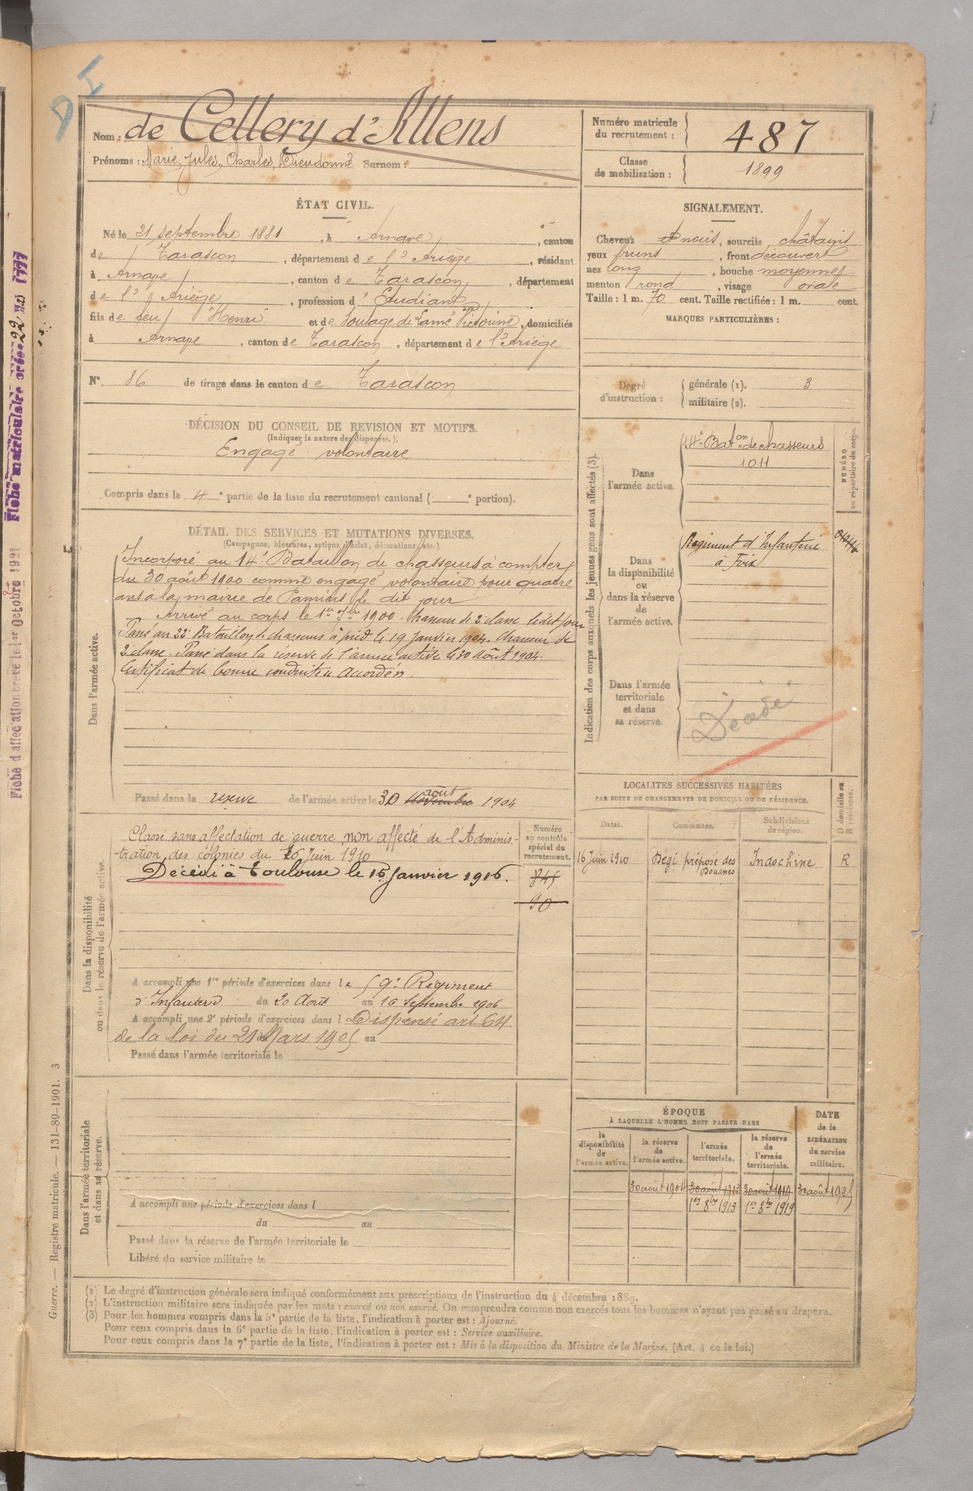 Nom : de Cellery d'Allens
Prénoms : Marie, Jules, Charles, Dieudonné Surnom :
Numéro matricule du recrutement : 487
Classe de mobilisation : 1899
ÉTAT CIVIL.
Né le 21 septembre 1881, à Arnave, canton
de Tarascon, département de l'Ariège, résidant
à Arnave, canton de Tarascon, département
de l'Ariège, profession d'Étudiant
fils de feu Henri et de Soulage de Lamé Victorine, domiciliés
à Arnave, canton de Tarascon, département de l'Ariège
N° 86 de tirage dans le canton de Tarascon
SIGNALEMENT.
Cheveux noirs, sourcils châtains
yeux bruns, front découvert
nez long, bouche moyenne
menton rond, visage ovale
Taille : 1 m. 70 cent. Taille rectifiée : 1 m. cent.
MARQUES PARTICULIÈRES :
Degré d'instruction : générale (1). 3
militaire (2).
DÉCISION DU CONSEIL DE REVISION ET MOTIFS.
(Indiquer la nature des dispenses.)
Engagé volontaire
Compris dans la 4e partie de la liste du recrutement cantonal ( e portion).
DÉTAIL DES SERVICES ET MUTATIONS DIVERSES.
(Campagnes, blessures, actions d'éclat, décorations, etc.)
Dans l'armée active.
Incorporé au 14e Bataillon de chasseurs à compter
du 30 août 1900 comme engagé volontaire pour quatre
ans à la mairie de Pamiers le dit jour
Arrivé au corps le 1er 7bre 1900. Chasseur de 2e classe le dit jour
Passé au 22e Bataillon de chasseurs à pied le 19 janvier 1904. Chasseur de
2e classe. Passé dans la réserve de l'armée active le 30 Août 1904.
Certificat de bonne conduite accordé.
Passé dans la réserve de l'armée active le 30 novembre août 1904
Indication des corps auxquels les jeunes gens sont affectés (3).
NUMÉRO au répertoire du corps.
Dans l'armée active.
14e Baton de chasseurs
1011
Dans la disponibilité ou dans la réserve de l'armée active.
Régiment d'Infanterie
à Foix
Dans l'armée territoriale et dans sa réserve.
Décédé
Dans la disponibilité ou dans la réserve de l'armée active.
Classé sans affectation de guerre, non affecté de l'Adminis-
tration des colonies du 26 Juin 1910
Décédé à Toulouse le 15 Janvier 1916.
Numéro au contrôle spécial du recrutement.
845
90
A accompli une 1re période d'exercices dans le 59e Régiment
d'Infanterie du 20 Août au 16 Septembre 1906
A accompli une 2e période d'exercices dans l Dispensé art 64
de la loi du 21 Mars 1905 au
Passé dans l'armée territoriale le
LOCALITÉS SUCCESSIVES HABITÉES
PAR SUITE DE CHANGEMENTS DE DOMICILE OU DE RÉSIDENCE.
Dates. Communes. Subdivisions de région. D domicile ou R résidence.
16 Juin 1910 Bégi préposé des Douanes Indochine R
Dans l'armée territoriale et dans sa réserve.
A accompli une période d'exercices dans l
du au
Passé dans la réserve de l'armée territoriale le
Libéré du service militaire le
ÉPOQUE
À LAQUELLE L'HOMME DOIT PASSER DANS
la disponibilité de l'armée active. la réserve de l'armée active. l'armée territoriale. la réserve de l'armée territoriale. DATE de la LIBÉRATION du service militaire.
30 août 1904 30 août 1913 30 août 1919 30 août 1925
1er 8bre 1913 1er 8bre 1919
(1) Le degré d'instruction générale sera indiqué conformément aux prescriptions de l'instruction du 4 décembre 1889.
(2) L'instruction militaire sera indiquée par les mots : exercé ou non exercé. On comprendra comme non exercés tous les hommes n'ayant pas passé au drapeau.
(3) Pour les hommes compris dans la 5e partie de la liste, l'indication à porter est : Ajourné.
Pour ceux compris dans la 6e partie de la liste, l'indication à porter est : Service auxiliaire.
Pour ceux compris dans la 7e partie de la liste, l'indication à porter est : Mis à la disposition du Ministre de la Marine. (Art. 4 de la loi.)
Guerre. — Registre matricule. — 131-89-1901. 3
Fiche d'affectation créée le 1er Octobre 1921
Fiche matriculaire créée 22